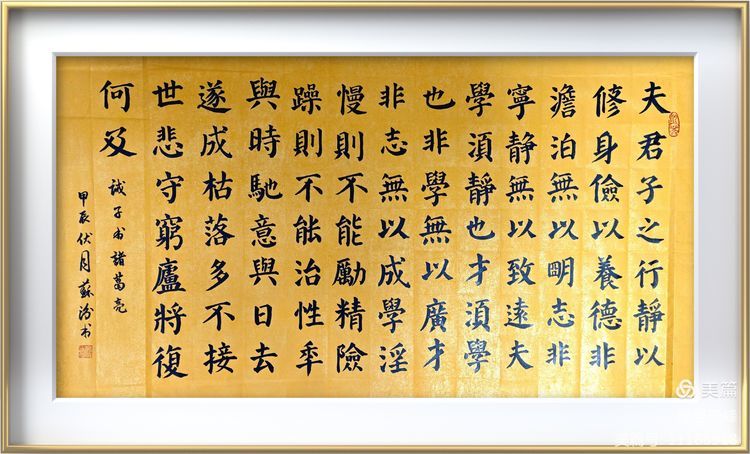 夫君子之行靜以
修身儉以養德非
澹泊無以明志非
寧静無以致遠夫
學湏靜也才湏學
也非學無以廣才
非志無以成學淫
慢則不能勵精險
躁則不能治性秊
與時馳意與日去
遂成枯落多不接
世悲守窮廬將復
何及
诫子书諸葛亮
甲辰伏月蘇汾书
美篇